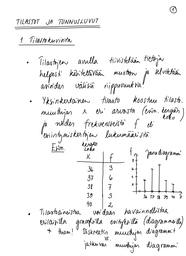 ①
TILASTOT JA TUNNUSLUVUT
1 Tilastokuvista
• Tilastojen avulla tiivistetään tietoja
helposti käsiteltävään muotoon ja selvitetään
asioiden välisiä riippuvuuksia.
• Yksinkertainen tilasto koostuu tilasto-
muuttujan x eri arvoista (esim. kengän
koko)
ja niiden frekvensseistä f eli
esiintymiskertojen lukumääristä
Esim
kengän
koko
x f
36 3
37 6
38 7
39 3
40 2
pylväsdiagrammi
• Tilastoaineistoa voidaan havainnollistaa
erilaisilla graafisilla esityksillä (diagrammeilla)
Diskreetin muuttujan diagrammi
vs.
jatkuvan muuttujan diagrammi